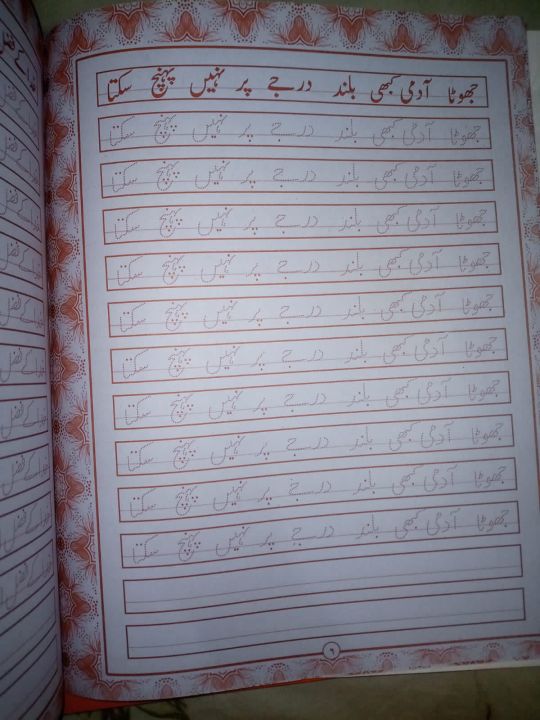 جھوٹا آدمی کبھی بلند درجے پر نہیں پہنچ سکتا
جھوٹا آدمی کبھی بلند درجے پر نہیں پہنچ سکتا
جھوٹا آدمی کبھی بلند درجے پر نہیں پہنچ سکتا
جھوٹا آدمی کبھی بلند درجے پر نہیں پہنچ سکتا
جھوٹا آدمی کبھی بلند درجے پر نہیں پہنچ سکتا
جھوٹا آدمی کبھی بلند درجے پر نہیں پہنچ سکتا
جھوٹا آدمی کبھی بلند درجے پر نہیں پہنچ سکتا
جھوٹا آدمی کبھی بلند درجے پر نہیں پہنچ سکتا
جھوٹا آدمی کبھی بلند درجے پر نہیں پہنچ سکتا
جھوٹا آدمی کبھی بلند درجے پر نہیں پہنچ سکتا
جھوٹا آدمی کبھی بلند درجے پر نہیں پہنچ سکتا